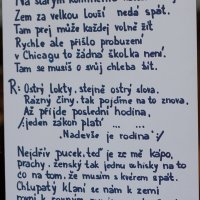 Na starým
Zem za velkou louží nedá spát.
Tam prej může každej volně žít
Rychle ale přišlo probuzení
v Chicagu to žádná školka není.
Tam se musíš o svůj chleba bít.
R: Ostrý lokty, stejně ostrý slova.
Rázný činy, tak pojďme na to znova.
Až přijde poslední hodina,
jeden zákon platí ... ...
Nadevše je rodina :/
Nejdřív pucek, teď je ze mě kápo,
prachy, ženský tak jednu whisky na to
co na tom, že musím s kvérem spát.
Chlupatý klaněj se nám k zemi